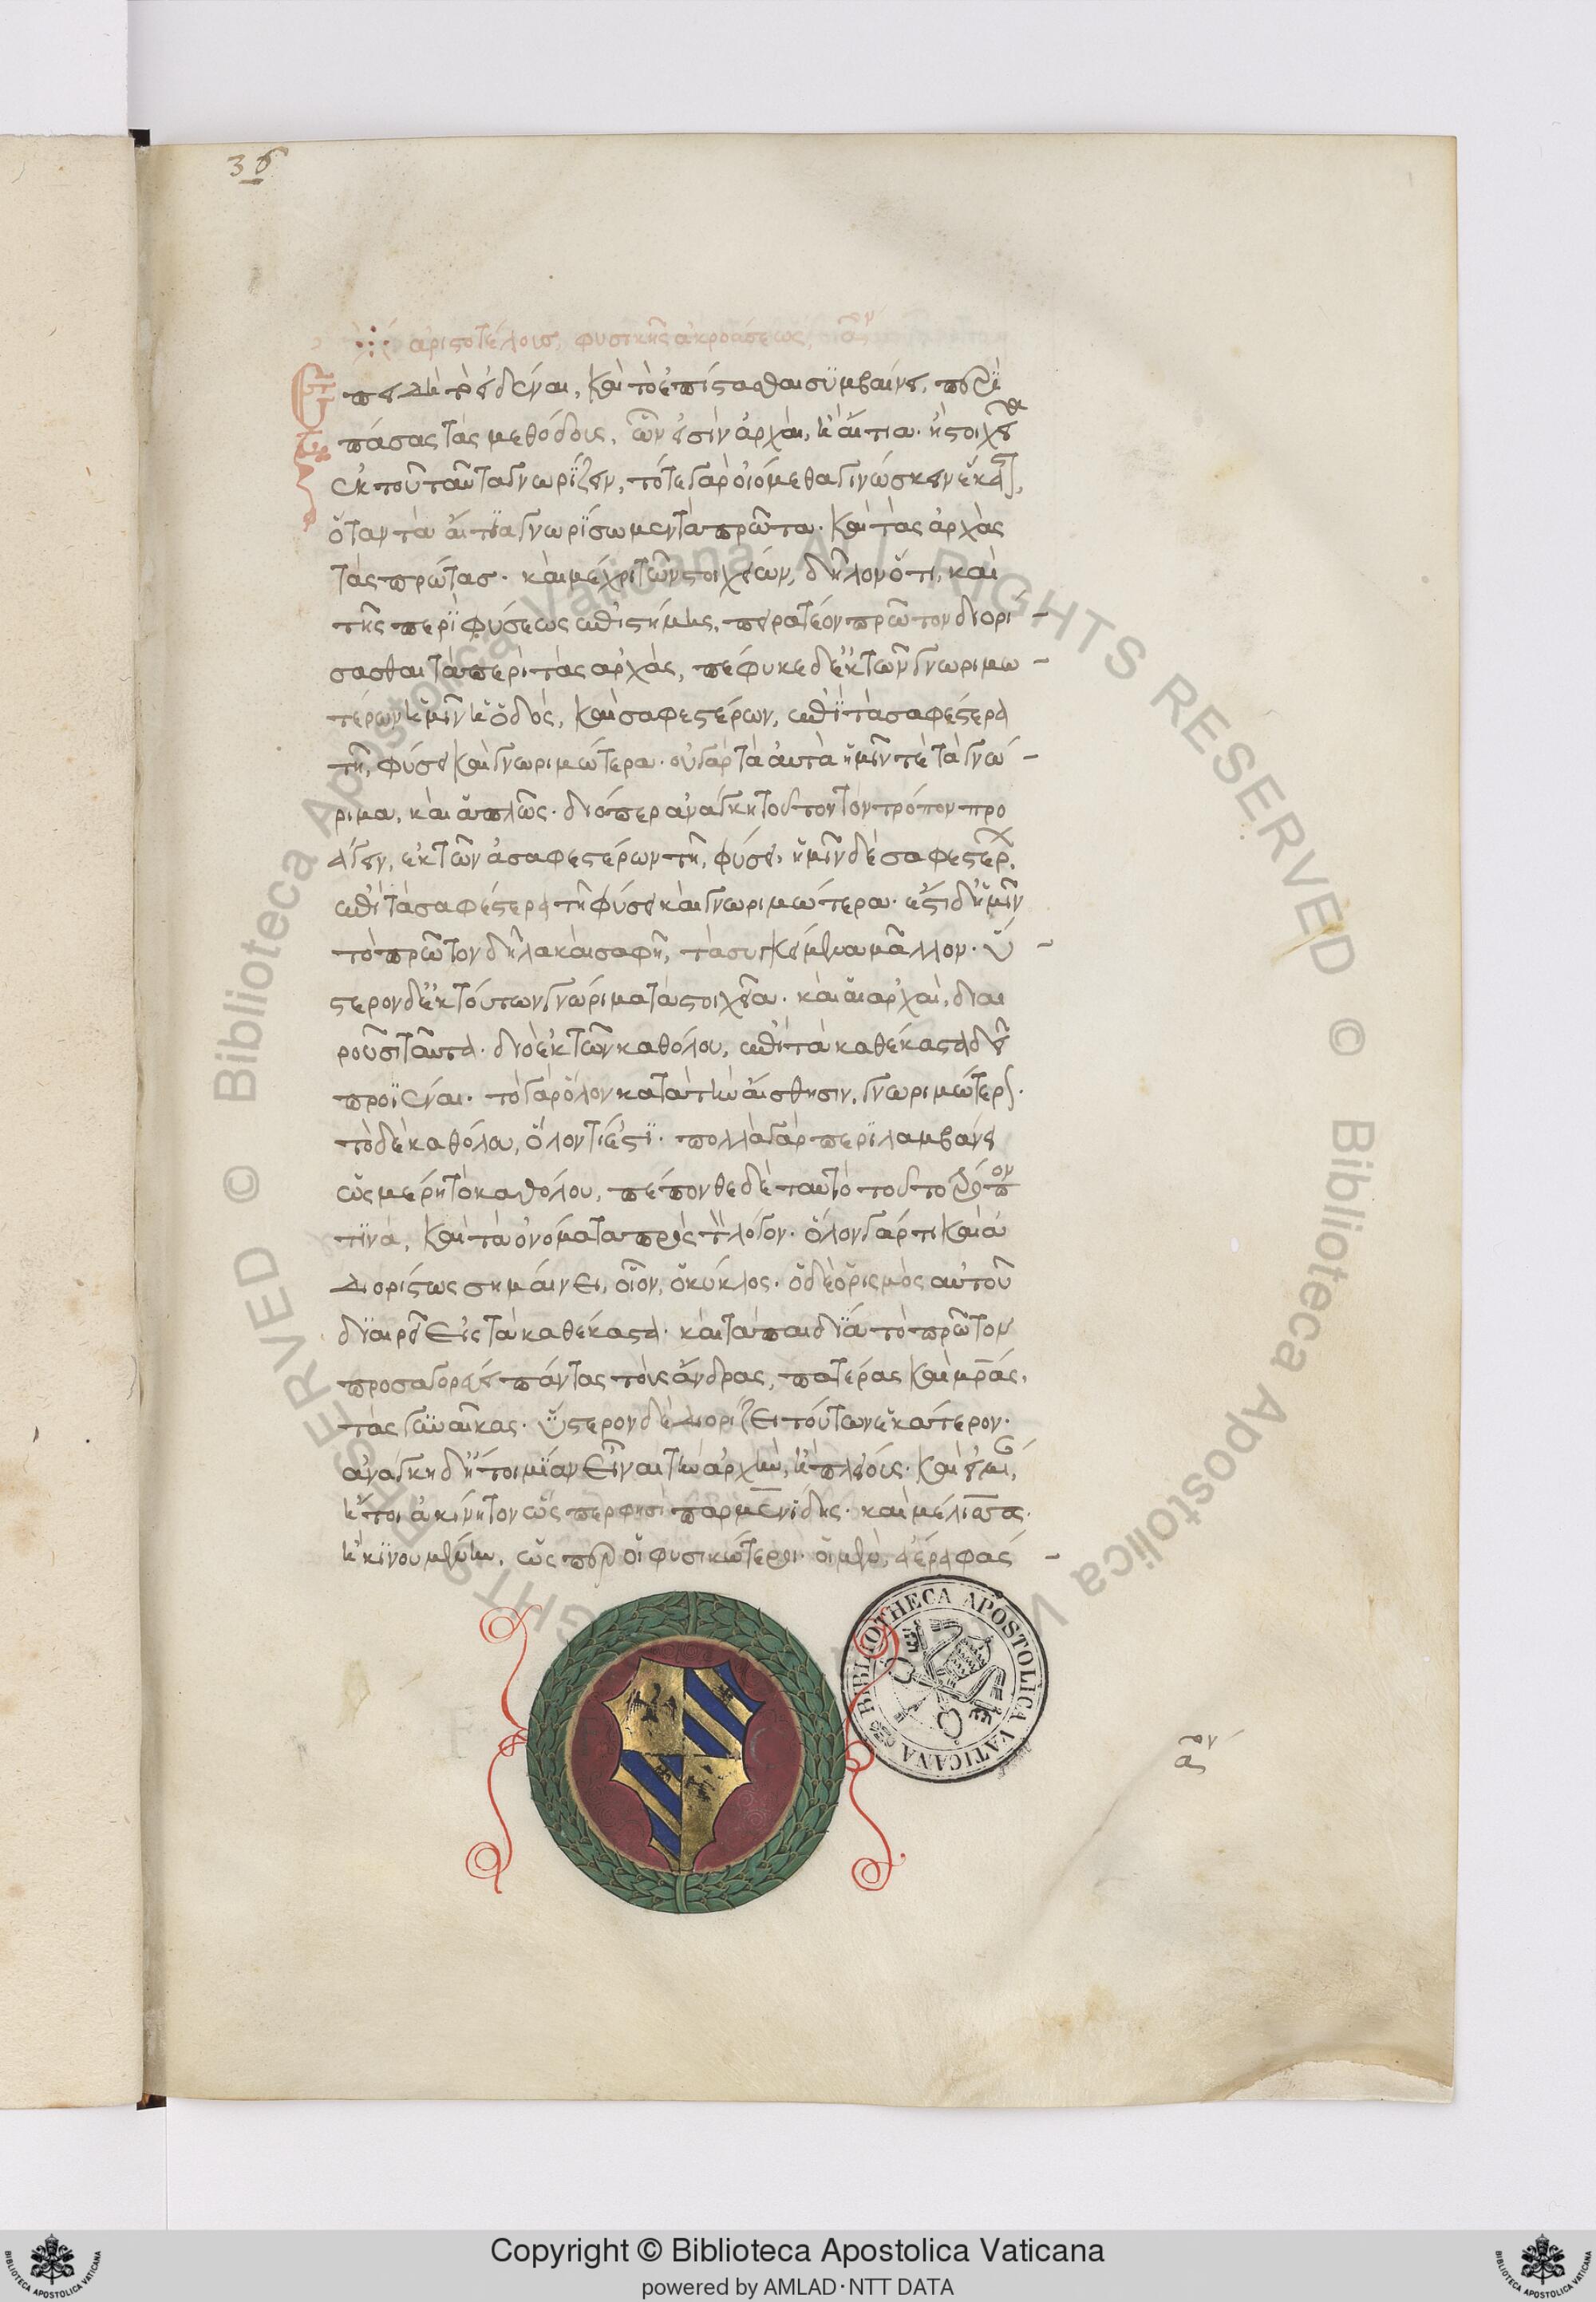 36
ἀριστοτέλους φυσικῆς ἀκροάσεως
Ἐπειδὴ τὸ εἰδέναι, καὶ τὸ ἐπίστασθαι συμβαίνει, περὶ
πάσας τὰς μεθόδους, ὧν εἰσὶν ἀρχαὶ, ἢ αἴτια. ἢ στοιχεῖα
ἐκ τοῦ ταῦτα γνωρίζειν, τότε γὰρ οἰόμεθα γινώσκειν ἕκαστον,
ὅταν τὰ αἴτια γνωρίσωμεν τὰ πρῶτα. καὶ τὰς ἀρχὰς
τὰς πρώτας. καὶ μέχρι τῶν στοιχείων, δῆλον ὅτι, καὶ
τῆς περὶ φύσεως ἐπιστήμης, πειρατέον πρῶτον διορι –
σασθαι τὰ περὶ τὰς ἀρχάς, πέφυκε δ' ἐκ τῶν γνωριμω –
τέρων ἡμῖν ἡ ὁδὸς, καὶ σαφεστέρων, ἐπὶ τὰ σαφέστερα
τῆ φύσει καὶ γνωριμώτερα. οὐ γὰρ ταὐτὰ ἡμῖν τὲ τὰ γνώ –
ριμα, καὶ ἁπλῶς. διόπερ ἀνάγκη τοῦτον τὸν τρόπον προ
άγειν, ἐκ τῶν ἀσαφεστέρων τῆ φύσει, ἡμῖν δὲ σαφεστέρων.
ἐπὶ τὰ σαφέστερα τῆ φύσει καὶ γνωριμώτερα. ἔστι δ' ἡμῖν
τὸ πρῶτον δῆλα καὶ σαφῆ, τὰ συγκεχυμένα μᾶλλον. ὕ –
στερον δ' ἐκ τούτων γνώριμα τὰ στοιχεῖα. καὶ αἱ ἀρχαὶ, διαι
ροῦσι ταῦτα. διὸ ἐκ τῶν καθόλου, ἐπὶ τὰ καθέκαστα δεῖ
προϊέναι. τὸ γὰρ ὅλον κατὰ τὴν αἴσθησιν, γνωριμώτερον.
τὸ δὲ καθόλου, ὅλον τί ἐστι. πολλὰ γὰρ περιλαμβάνει
ὡς μέρη τὸ καθόλου, πέπονθε δὲ ταυτὸ τοῦτο τρόπον
τινὰ, καὶ τὰ ὀνόματα πρὸς τὸν λόγον. ὅλον γάρ τι καὶ ἀ
διορίστως σημαίνει, οἷον, ὁ κύκλος. ὁ δὲ ὁρισμὸς αὐτοῦ
διαιρεῖ εἰς τὰ καθέκαστα. καὶ τὰ παιδία τὸ πρῶτον
προσαγορεύει πάντας τοὺς ἄνδρας, πατέρας καὶ μρας,
τὰς γυναῖκας. ὕστερον δὲ διορίζει τούτων ἑκάτερον.
ἀνάγκη δ' ἤτοι μίαν εἶναι τὴν ἀρχὴν, ἢ πλείους. καὶ εἰ μίαν,
ἤτοι ἀκίνητον ὥς περ φησὶ παρμενίδης. καὶ μέλισσος.
ἢ κινουμένην, ὥς περ οἱ φυσικώτεροι. οἱ μὲν, ἀέρα φασ –
BIBLIOTHECA APOSTOLICA VATICANA
© Biblioteca Apostolica Vaticana ALL RIGHTS RESERVED © Biblioteca Apostolica Vaticana ALL RIGHTS RESERVED
Copyright © Biblioteca Apostolica Vaticana
powered by AMLAD·NTT DATA